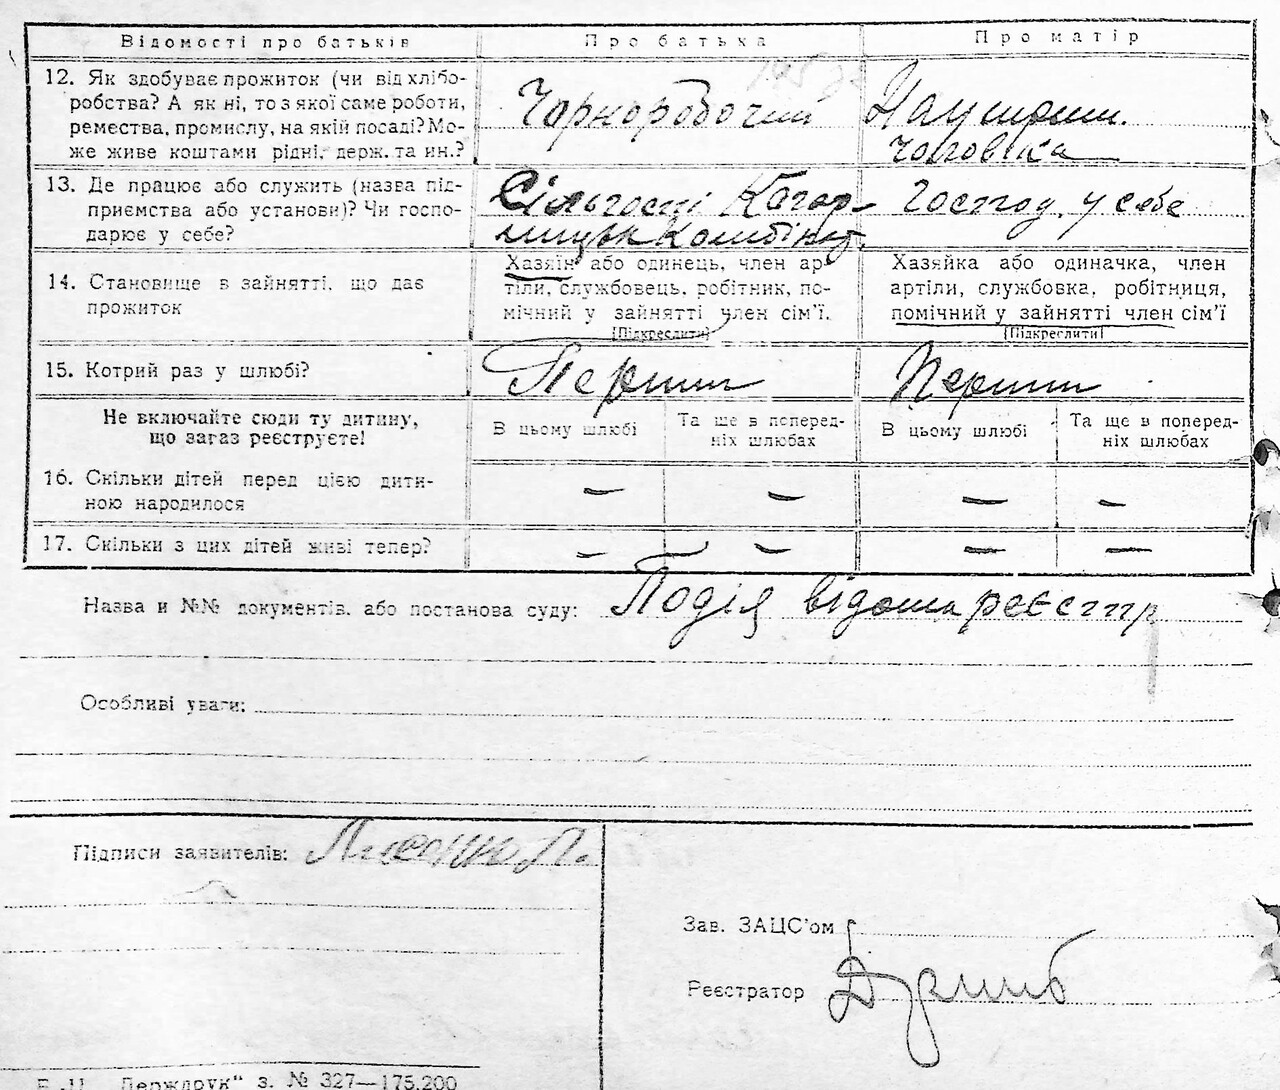 Відомості про батьків Про батька Про матір
12. Як здобуває прожиток (чи від хлібо-
робства? А як ні, то з якої саме роботи,
ремества, промислу, на якій посаді? Мо-
же живе коштами рідні, держ. та ин.?
Чорноробочий
На утрим.
чоловіка
13. Де працює або служить (назва під-
приємства або установи)? Чи госпо-
дарює у себе?
Сільгоспі
Комбінат
Господ. у себе
14. Становище в зайнятті, що дає
прожиток
Хазяїн або одинець, член ар-
тіли, службовець, робітник, по-
мічний у зайнятті член сім'ї.
[Підкреслити]
Хазяйка або одиначка, член
артіли, службовка, робітниця,
помічний у зайнятті член сім'ї
[Підкреслити]
15. Котрий раз у шлюбі?
Перший
Перший
Не включайте сюди ту дитину,
що зараз реєструєте!
В цьому шлюбі
Та ще в поперед-
ніх шлюбах
В цьому шлюбі
Та ще в поперед-
ніх шлюбах
16. Скільки дітей перед цією дити-
ною народилося
— — — —
17. Скільки з цих дітей живі тепер?
— — — —
Назва и №№ документів, або постанова суду: Подія відома реєстр
Особливі уваги:
Підписи заявителів: Лисенко П.
Зав. ЗАЦС'ом
Реєстратор
Держдрук" з. № 327—175.200